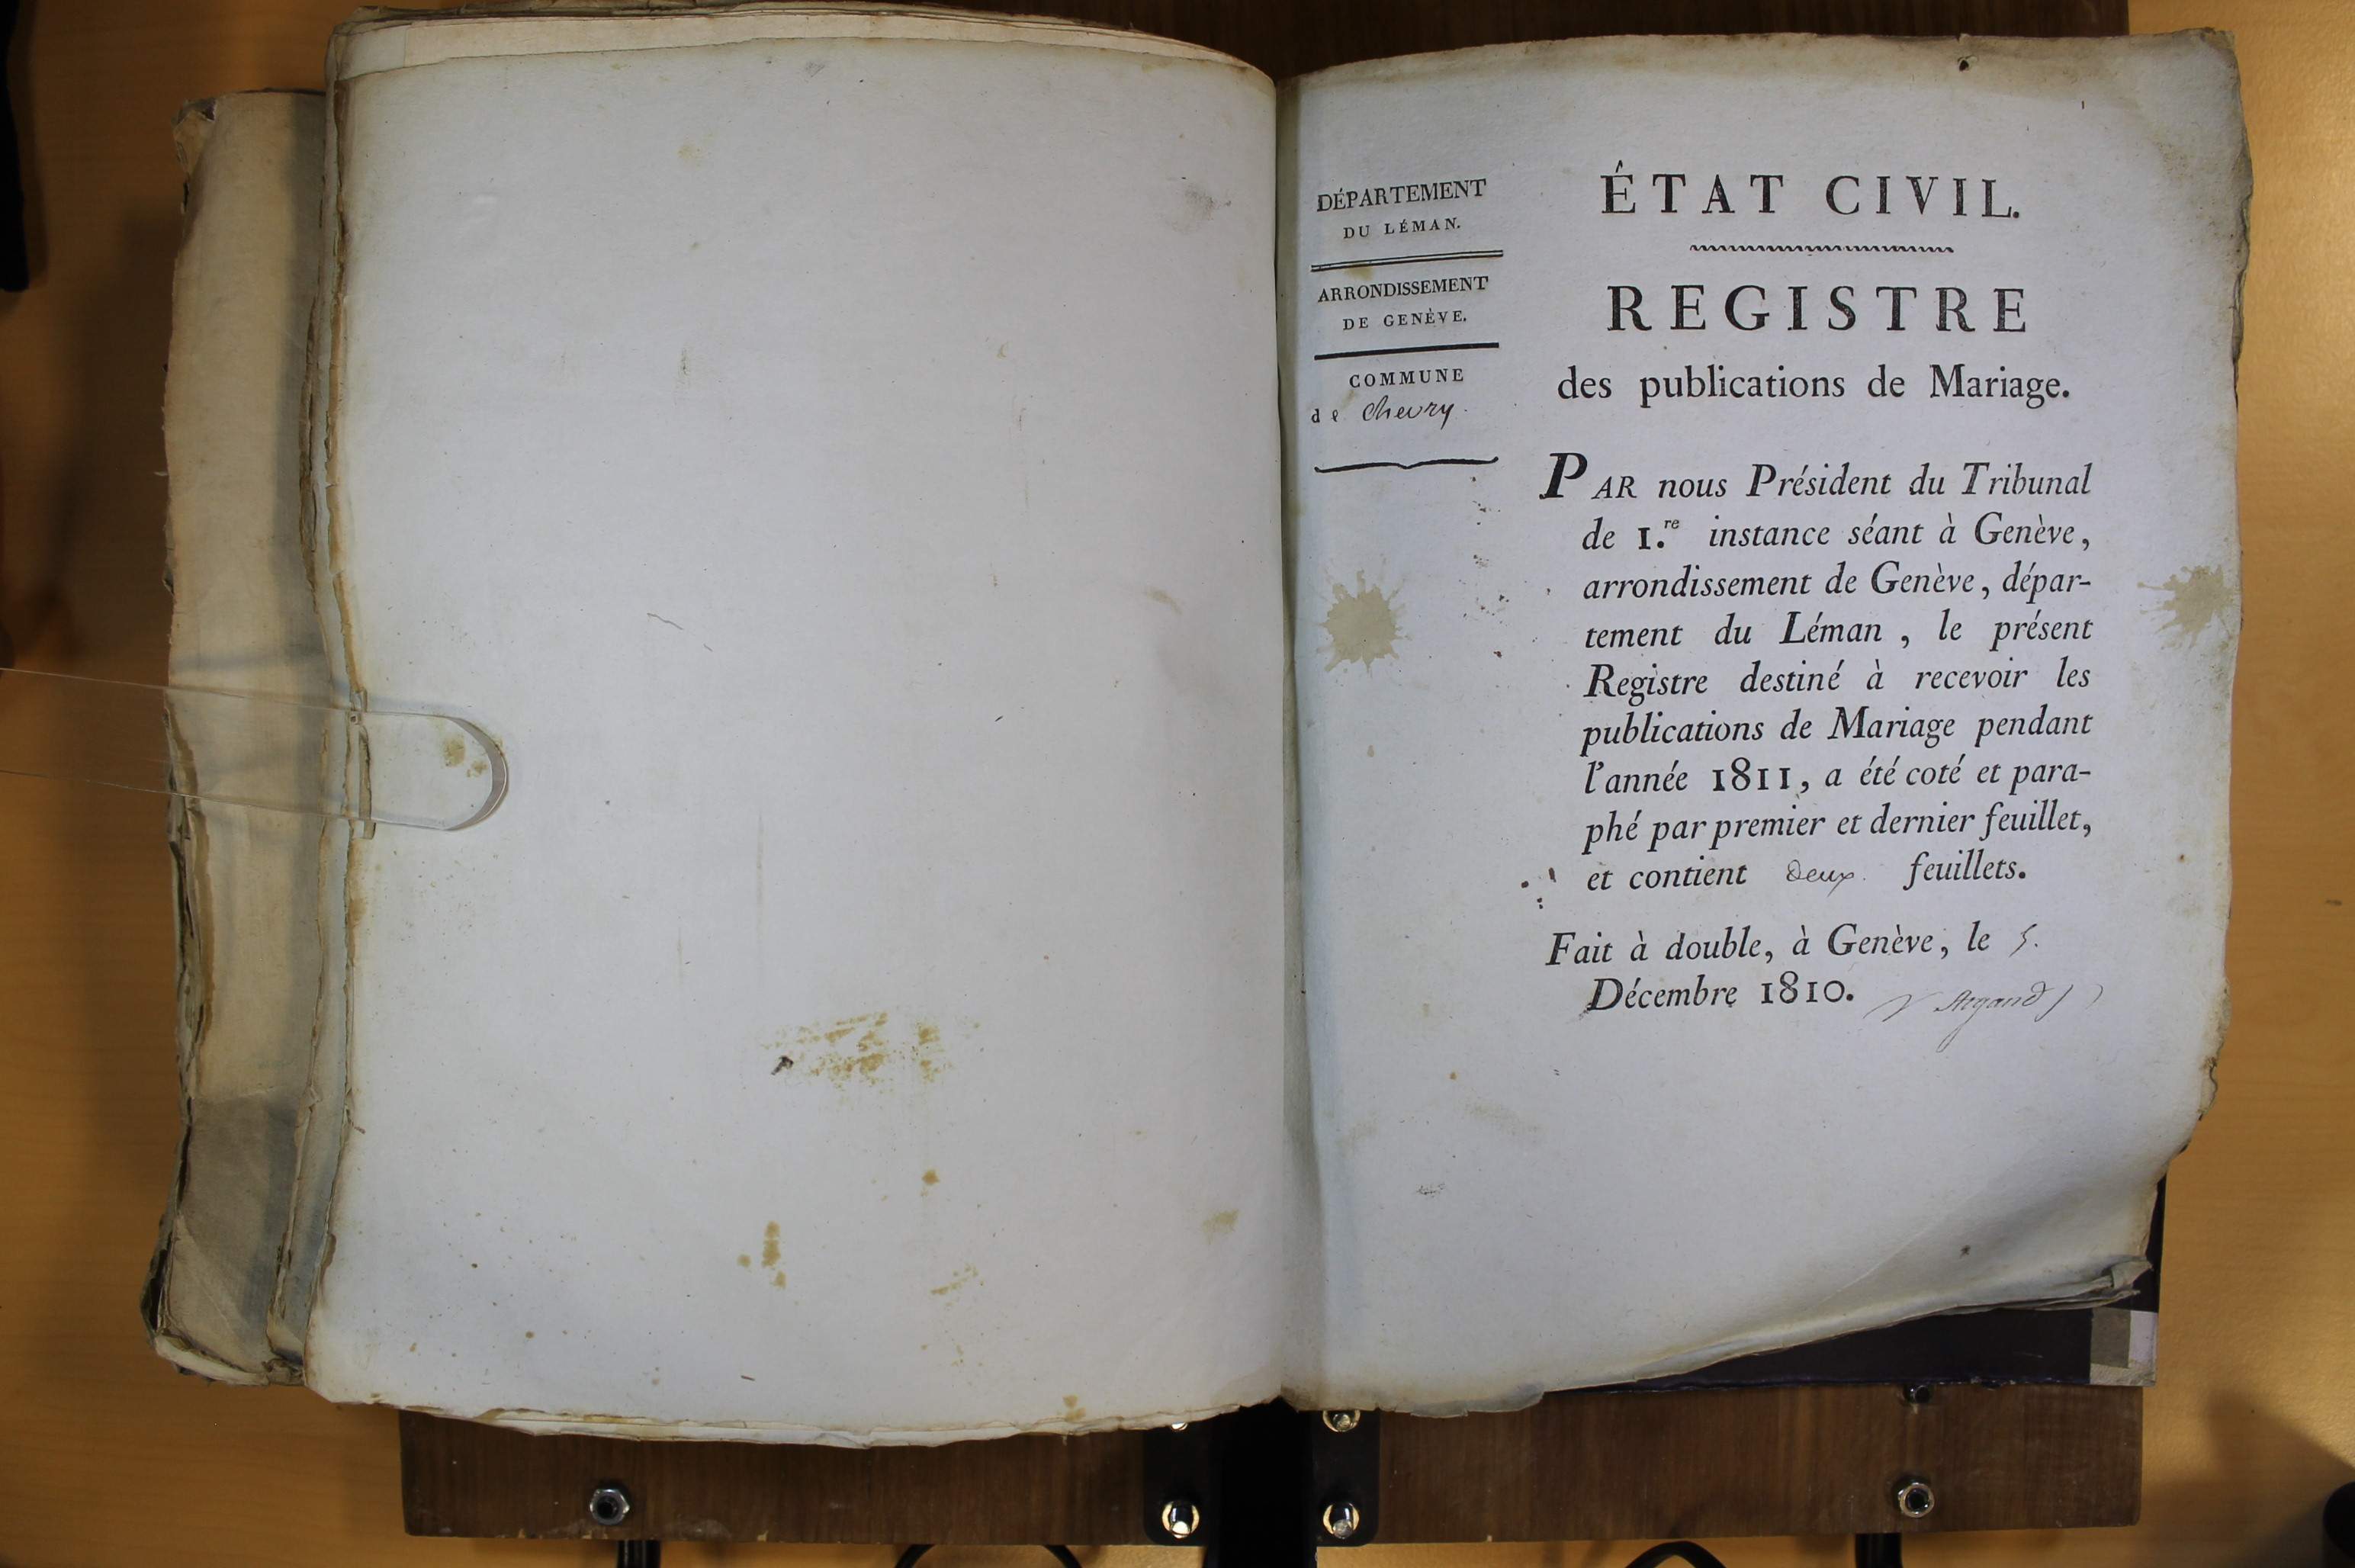 DÉPARTEMENT
DU LÉMAN.
ARRONDISSEMENT
DE GENÈVE.
COMMUNE
de Chevry.
ÉTAT CIVIL.
REGISTRE
des publications de Mariage.
PAR nous Président du Tribunal
de 1.re instance séant à Genève,
arrondissement de Genève, dépar-
tement du Léman, le présent
Registre destiné à recevoir les
publications de Mariage pendant
l'année 1811, a été coté et para-
phé par premier et dernier feuillet,
et contient deux feuillets.
Fait à double, à Genève, le 5.
Décembre 1810. Argand